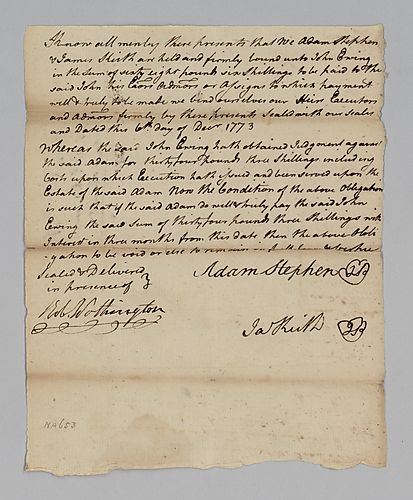 Know all men by these presents that We Adam Stephen
& James Keith are held and firmly bound unto John Ewing
in the Sum of sixty eight pounds six Shillings to be paid to the
said John his Exors Admors or Assigns to which payment
well & truly to be made we bind ourselves our Heirs Executors
and Admors firmly by these presents Sealed with our Seales
and Dated this 6th day of Decr 1773
Whereas the said John Ewing hath obtained Judgment against
the said Adam for thirty four pounds three Shillings including
Costs upon which Execution hath Issued and been served upon the
Estate of the said Adam Now the Condition of the above Obligation
is such that if the said Adam do well & truly pay the said John
Ewing the said Sum of thirty four pounds three Shillings with
Interest in three months from this date then the above Obli-
gation to be void or else to remain in full
Sealed & Delivered
in presence of }
Adam Stephen
Rob Worthington
Ja Keith
NA653